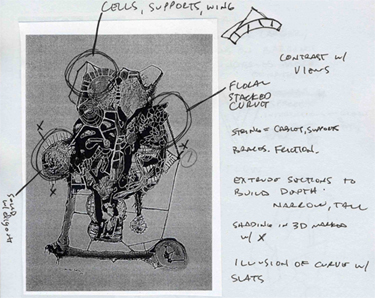 CELLS, SUPPORTS, WING
CONTRAST W/
VIEWS
FLORAL
STACKED
CURVES
STRING = CABLES, SUPPORTS
BRACES. FRICTION.
EXTRUDE SECTIONS TO
BUILD DEPTH.
NARROW, TALL
SHADING IN 3D MARKED
W/ X
ILLUSION OF CURVE W/
SLATS